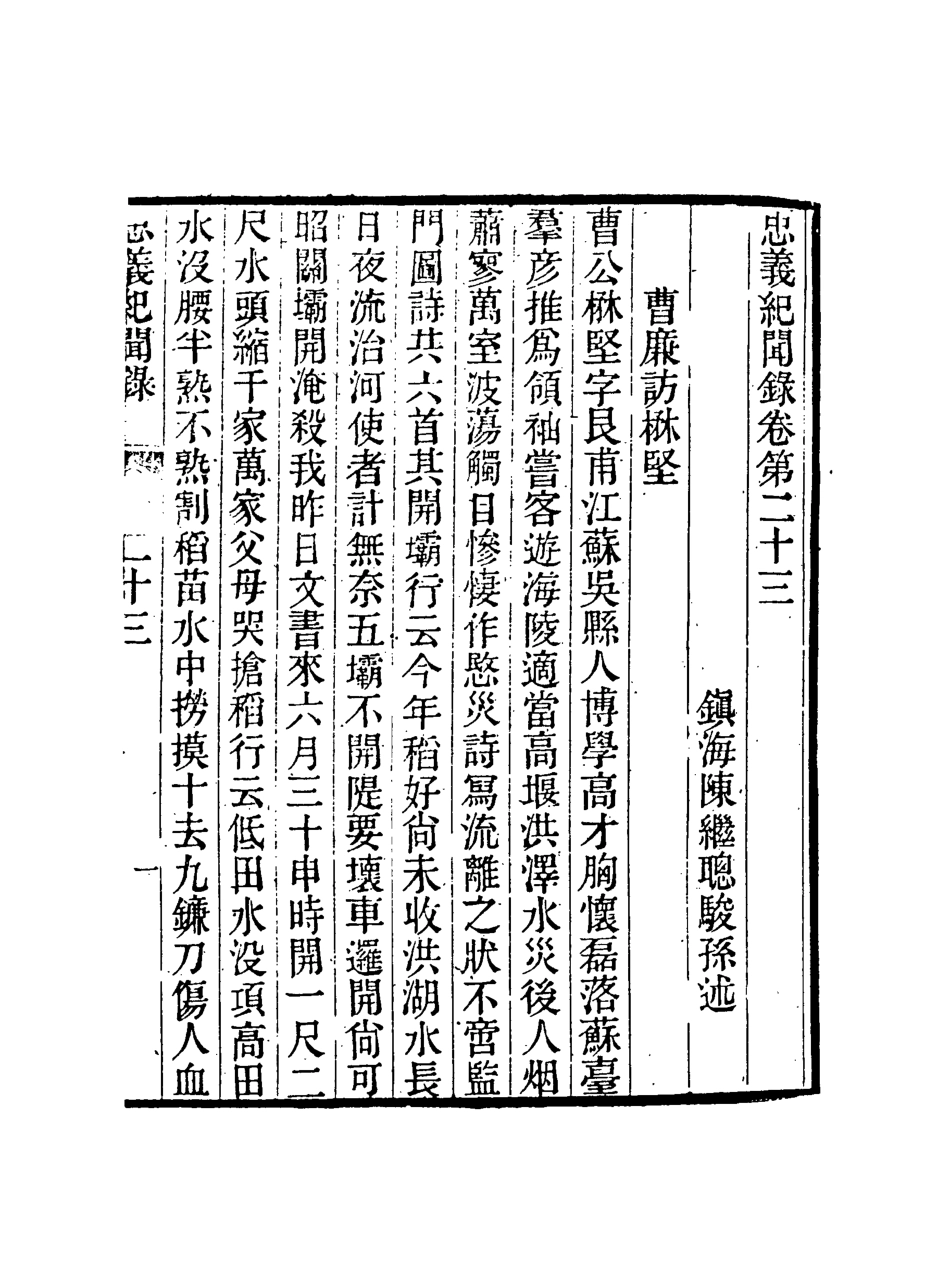 忠義紀聞錄卷第二十三
鎮海陳繼聰駿孫述
曹廉訪楙堅
曹公楙堅字艮甫江蘇吳縣人博學高才胸懷磊落蘇臺
羣彥推爲領袖嘗客遊海陵適當高堰洪澤水災後人烟
蕭寥萬室波蕩觸目慘悽作愍災詩寫流離之狀不啻監
門圖詩共六首其開壩行云今年稻好尙未收洪湖水長
日夜流治河使者計無奈五壩不開隄要壞車邏開尙可
昭關壩開淹殺我昨日文書來六月三十申時開一尺二
尺水頭縮千家萬家父母哭搶稻行云低田水没項高田
水沒腰半熟不熟割稻苗水中撈摸十去九鐮刀傷人血
忠義紀聞錄 二十三 一